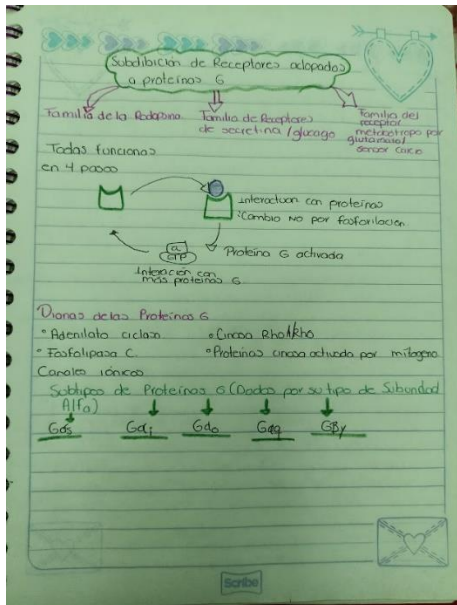 Subdibición de Receptores aclopados
a proteínas G
Familia de la Rodopsina
Familia de Receptores
de secretina/glucago
Familia del
receptor
metabotropo por
glutamato/
sensor calcio
Todas funcionas
en 4 pasos
Interactuan con proteínas
Cambio No por fosforilación
Proteína G activada
α
GTP
Interación con
más proteínas G
Dianas de las Proteínas G
° Adenilato ciclasa
° Cinasa RhoA/Rho
° Fosfolipasa C.
° Proteínas cinasa activada por mitogeno
Canales Iónicos
Subtipos de Proteínas G (Dados por su tipo de Subunidad
Alfa)
Gαs Gαi Gαo Gαq Gβγ
Scribe